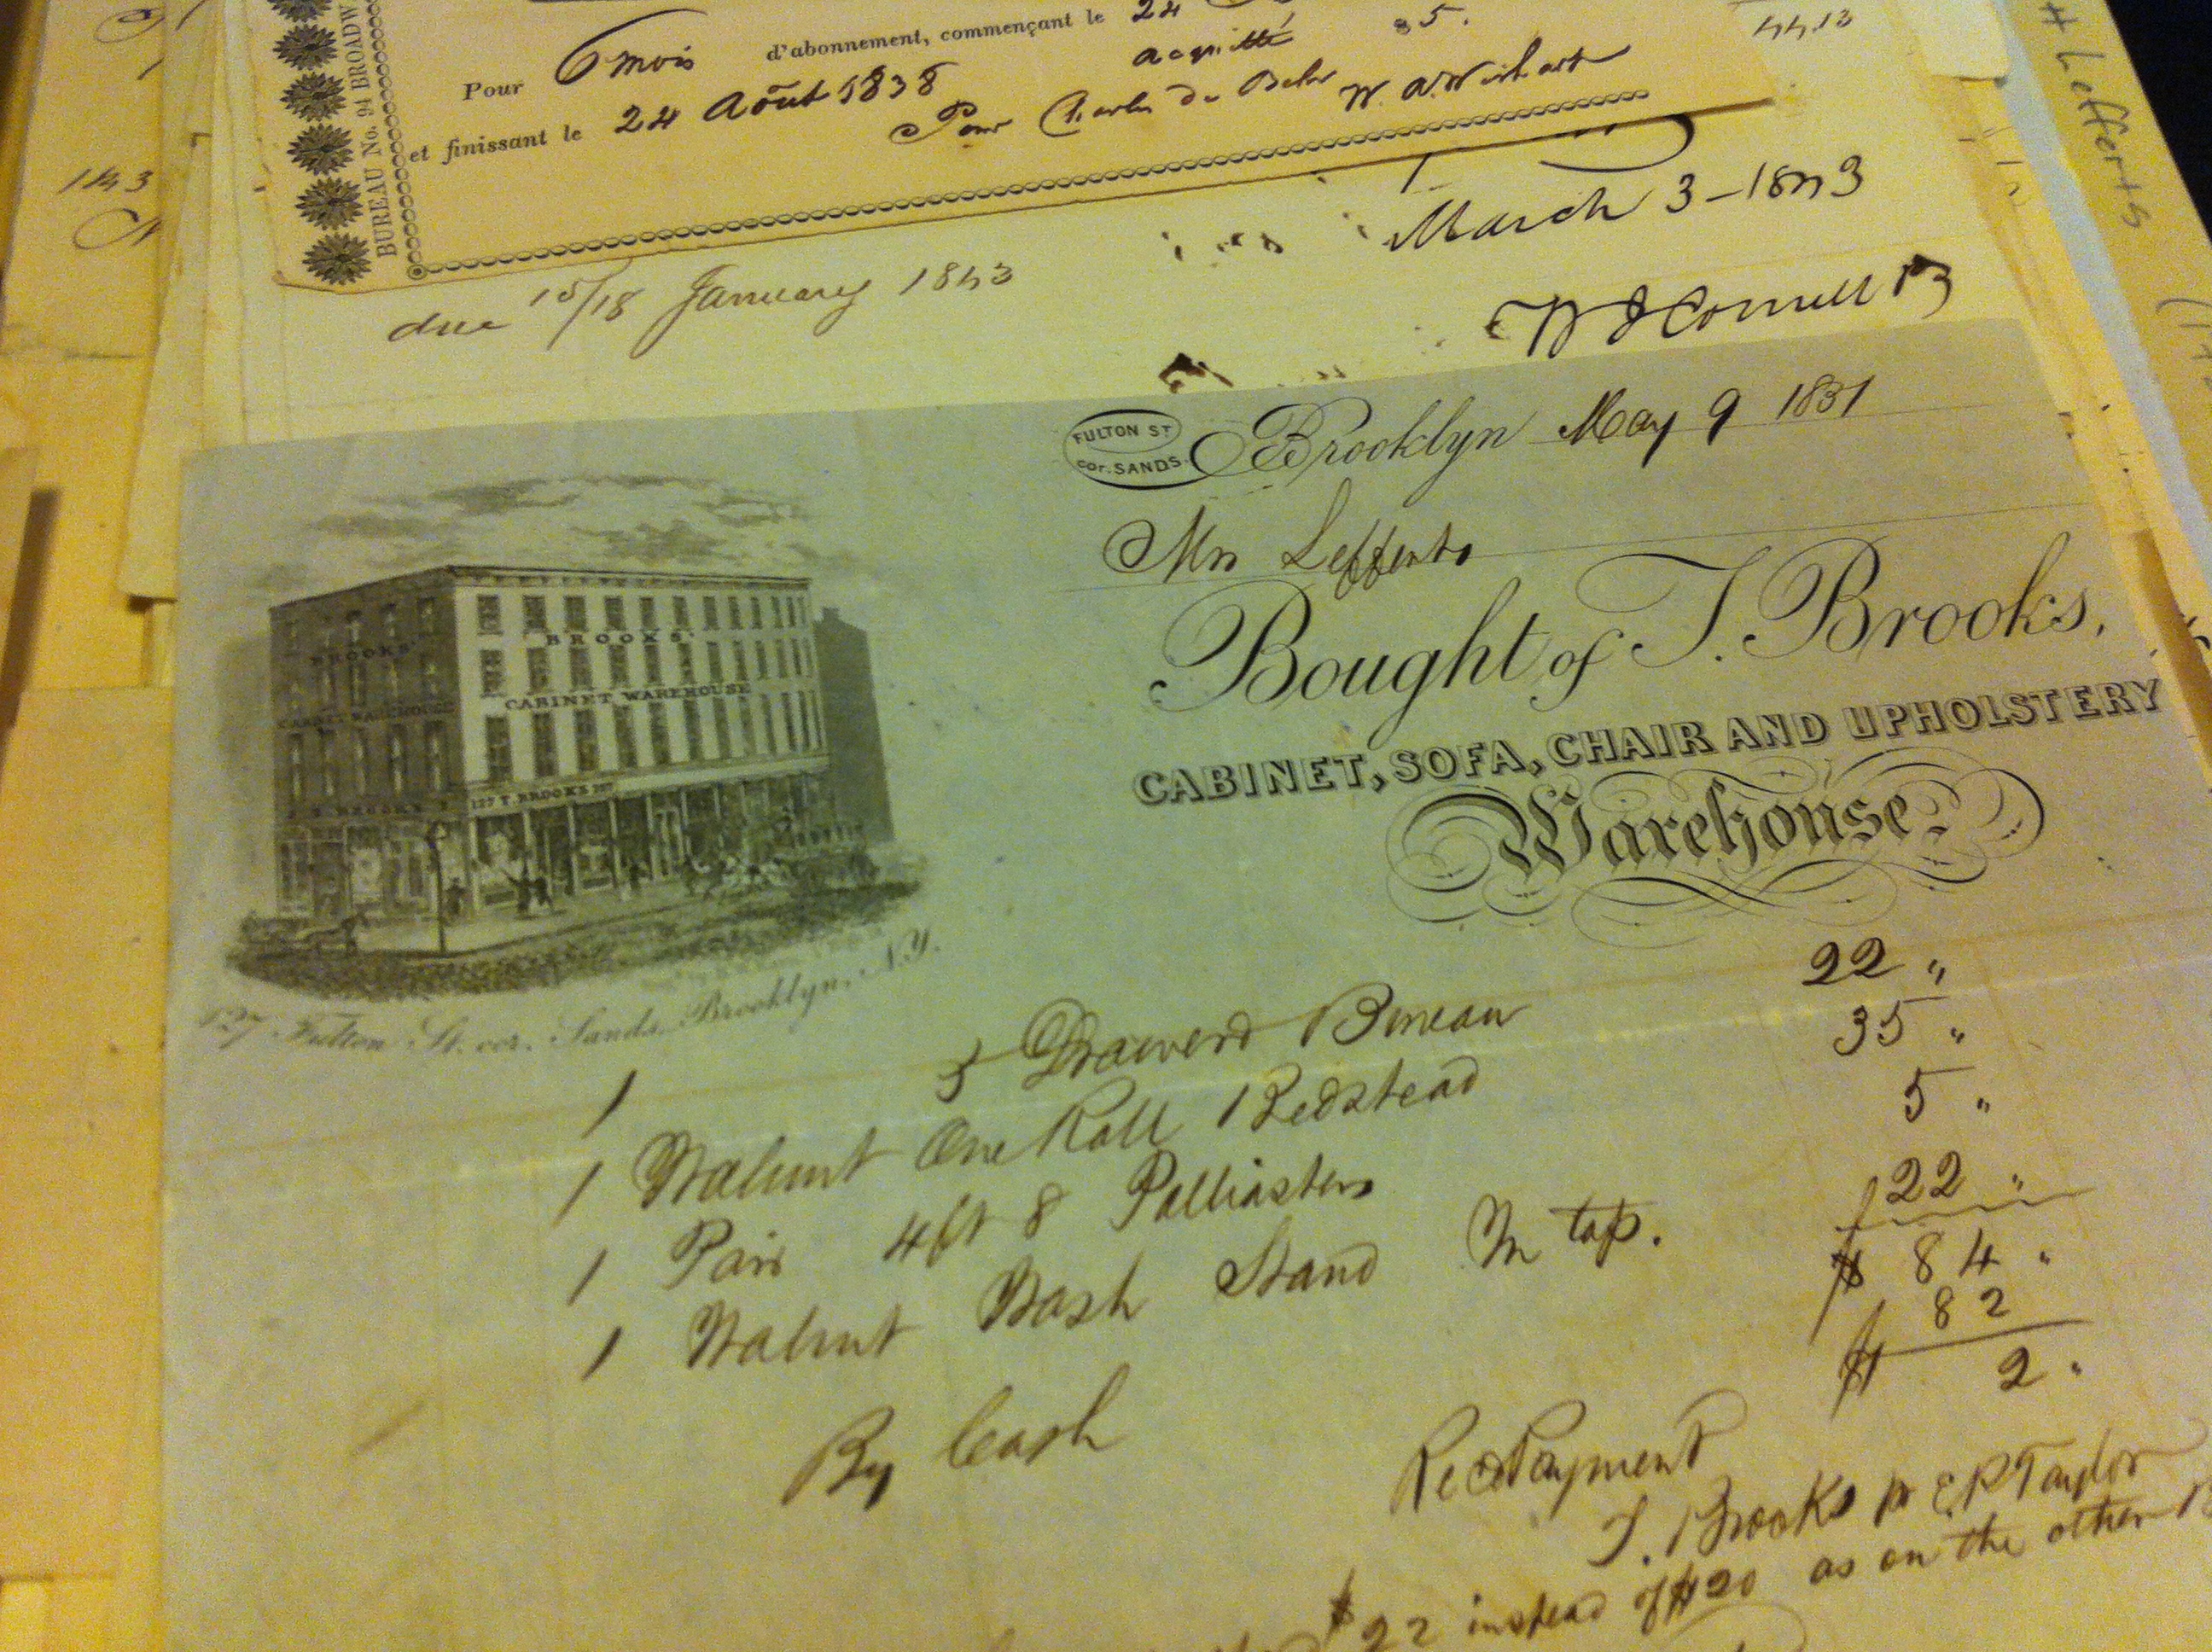 Pour 6 mois d'abonnement, commençant le 24
et finissant le 24 Août 1838 acquitté 5.
Pour Charles De Behr
BUREAU No. 94 BROADW
44.13
Lefferts
March 3 - 1843
due 15/18 January 1843
FULTON ST
cor. SANDS.
Brooklyn May 9 1851
Mrs Lefferts
Bought of T. Brooks,
CABINET, SOFA, CHAIR AND UPHOLSTERY
Warehouse
BROOKS'
BROOKS'
CABINET WAREHOUSE
CABINET WAREHOUSE
127 T. BROOKS 127
127 Fulton St. cor. Sands, Brooklyn, N.Y.
1 5 Drawerd Bureau 22 "
1 Walnut One Roll Bedstead 35 "
1 Pair 4 ft 8 Palliasters 5 "
1 Walnut Wash Stand M top. 22 "
$ 84 "
By Cash 82
$ 2 "
Recd Payment
T. Brooks pr E P Taylor
$22 instead of $20 as on the other